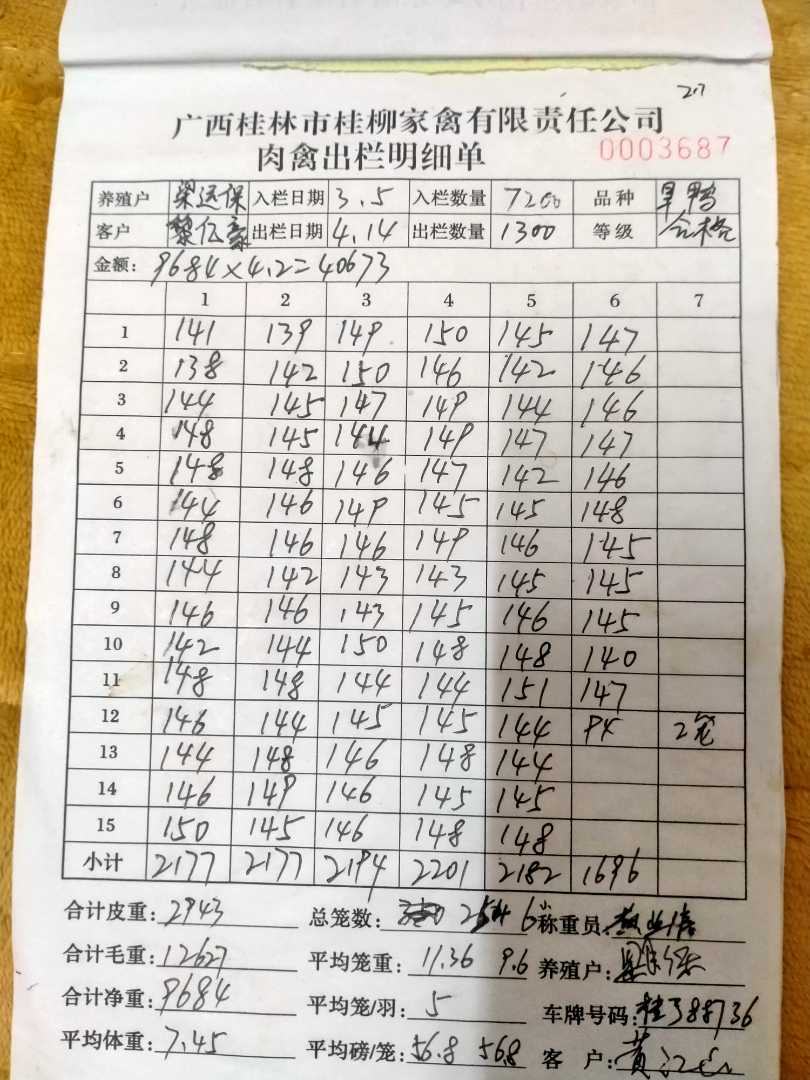 2.7
广西桂林市桂柳家禽有限责任公司
肉禽出栏明细单 0003687
养殖户 梁运保 入栏日期 3.5 入栏数量 7200 品种 旱鸭
客户 黎伍豪 出栏日期 4.14 出栏数量 1300 等级 合格
金额: 9684×4.2=40673
1 2 3 4 5 6 7
1 141 139 149 150 145 147
2 138 142 150 146 142 146
3 144 145 147 149 144 146
4 148 145 144 149 147 147
5 148 148 146 147 142 146
6 144 146 149 145 145 148
7 148 146 146 149 146 145
8 144 142 143 143 145 145
9 146 146 143 145 146 145
10 142 144 150 148 148 140
11 148 148 144 144 151 147
12 146 144 145 145 144 94 2笼
13 144 148 146 148 144
14 146 149 146 145 145
15 150 145 146 148 148
小计 2177 2177 2194 2201 2182 1696
合计皮重: 2943 总笼数: 254 6小 称重员:
合计毛重: 12627 平均笼重: 11.36 9.6 养殖户:
合计净重: 9684 平均笼/羽: 5 车牌号码: 桂J88736
平均体重: 7.45 平均磅/笼: 56.8 56.8 客户: 黄江山